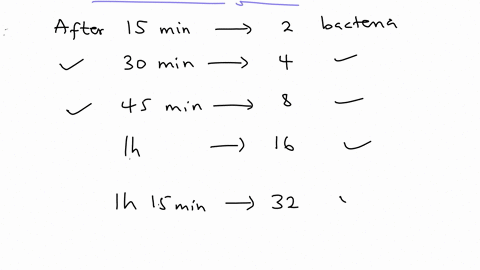 After 15 min → 2 bacteria
✓ 30 min → 4 ✓
✓ 45 min → 8 ✓
1h → 16 ✓
1h 15 min → 32